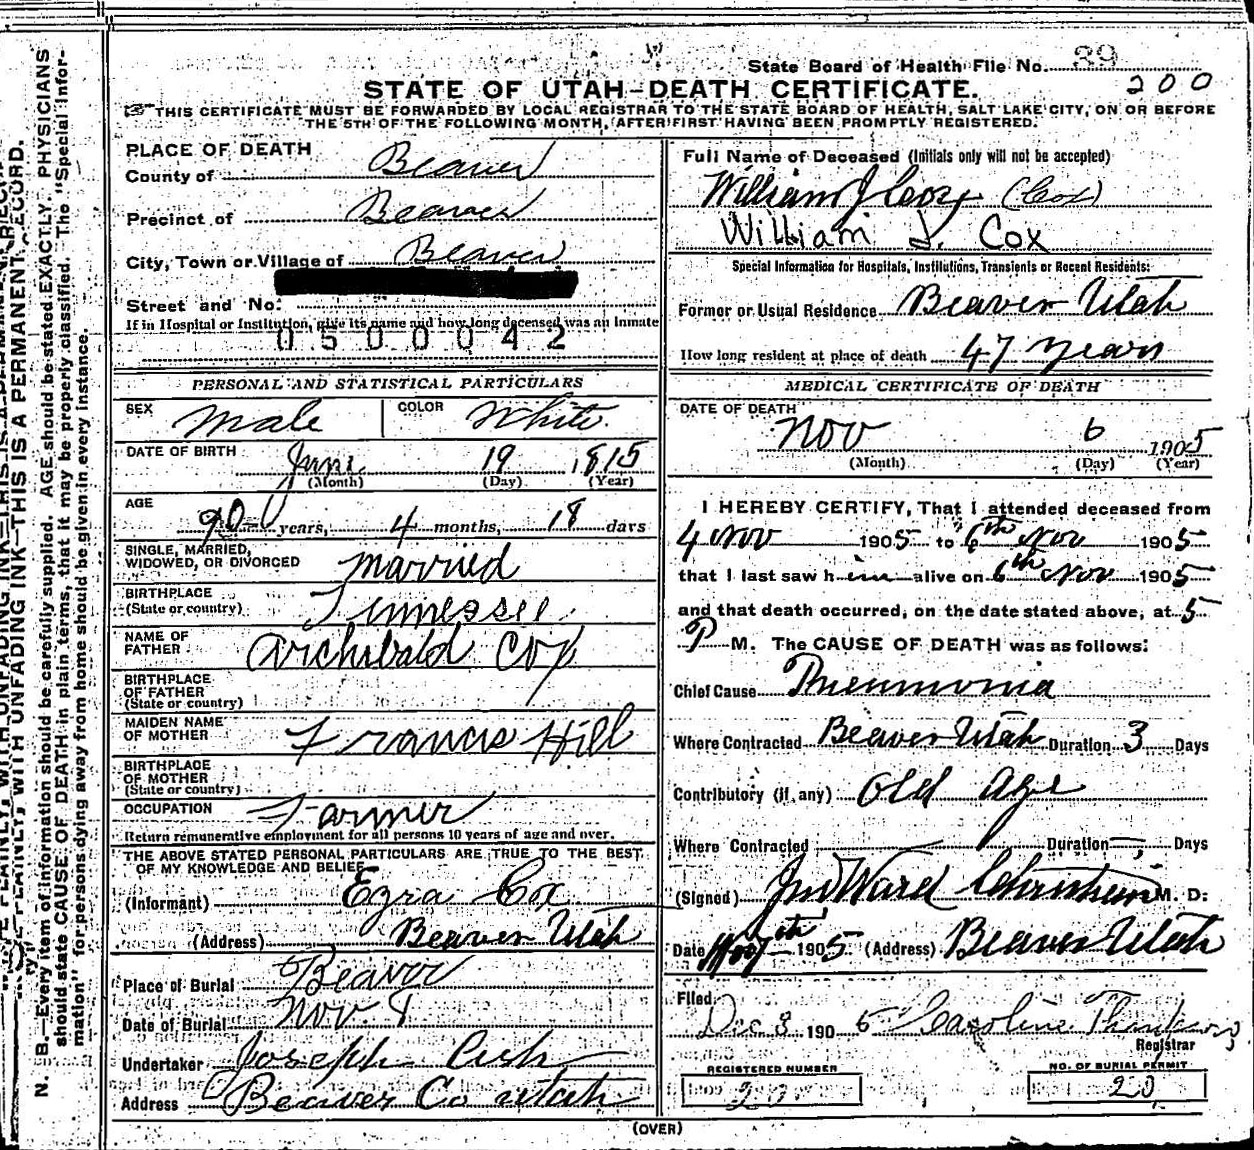 State Board of Health File No. 39
200
STATE OF UTAH—DEATH CERTIFICATE.
☞ THIS CERTIFICATE MUST BE FORWARDED BY LOCAL REGISTRAR TO THE STATE BOARD OF HEALTH, SALT LAKE CITY, ON OR BEFORE
THE 5TH OF THE FOLLOWING MONTH, AFTER FIRST HAVING BEEN PROMPTLY REGISTERED.
PLACE OF DEATH
County of Beaver
Precinct of Beaver
City, Town or Village of Beaver
Street and No.
If in Hospital or Institution, give its name and how long deceased was an inmate
0500042
PERSONAL AND STATISTICAL PARTICULARS
SEX Male COLOR White.
DATE OF BIRTH June 19 1815
(Month) (Day) (Year)
AGE 90 years, 4 months, 18 days
SINGLE, MARRIED,
WIDOWED, OR DIVORCED Married
BIRTHPLACE
(State or country) Tennessee
NAME OF
FATHER Archibald Cox
BIRTHPLACE
OF FATHER
(State or country)
MAIDEN NAME
OF MOTHER Francis Hill
BIRTHPLACE
OF MOTHER
(State or country)
OCCUPATION Farmer
Return remunerative employment for all persons 10 years of age and over.
THE ABOVE STATED PERSONAL PARTICULARS ARE TRUE TO THE BEST
OF MY KNOWLEDGE AND BELIEF
(Informant) Ezra Cox
(Address) Beaver Utah
Place of Burial Beaver
Date of Burial Nov. 8
Undertaker Joseph
Address Beaver Co Utah
Full Name of Deceased (Initials only will not be accepted)
William J (Cox)
William J. Cox
Special Information for Hospitals, Institutions, Transients or Recent Residents:
Former or Usual Residence Beaver Utah
How long resident at place of death 47 years
MEDICAL CERTIFICATE OF DEATH
DATE OF DEATH
Nov 6 1905
(Month) (Day) (Year)
I HEREBY CERTIFY, That I attended deceased from
4 Nov 1905 to 6th Nov 1905
that I last saw him alive on 6th Nov 1905
and that death occurred, on the date stated above, at 5
P M. The CAUSE OF DEATH was as follows:
Chief Cause Pneumonia
Where Contracted Beaver Utah Duration 3 Days
Contributory (if any) Old Age
Where Contracted Duration Days
(Signed) Jno Ward M. D.
Date Nov 7th 1905 (Address) Beaver Utah
Filed
Dec 8 190 Caroline
Registrar
REGISTERED NUMBER NO. OF BURIAL PERMIT
20 20
(OVER)
N. B.—Every item of information should be carefully supplied. AGE should be stated EXACTLY. PHYSICIANS
should state CAUSE OF DEATH in plain terms, that it may be properly classified. The "Special Infor-
mation" for persons dying away from home should be given in every instance.
PLAINLY, WITH UNFADING INK—THIS IS A PERMANENT RECORD.